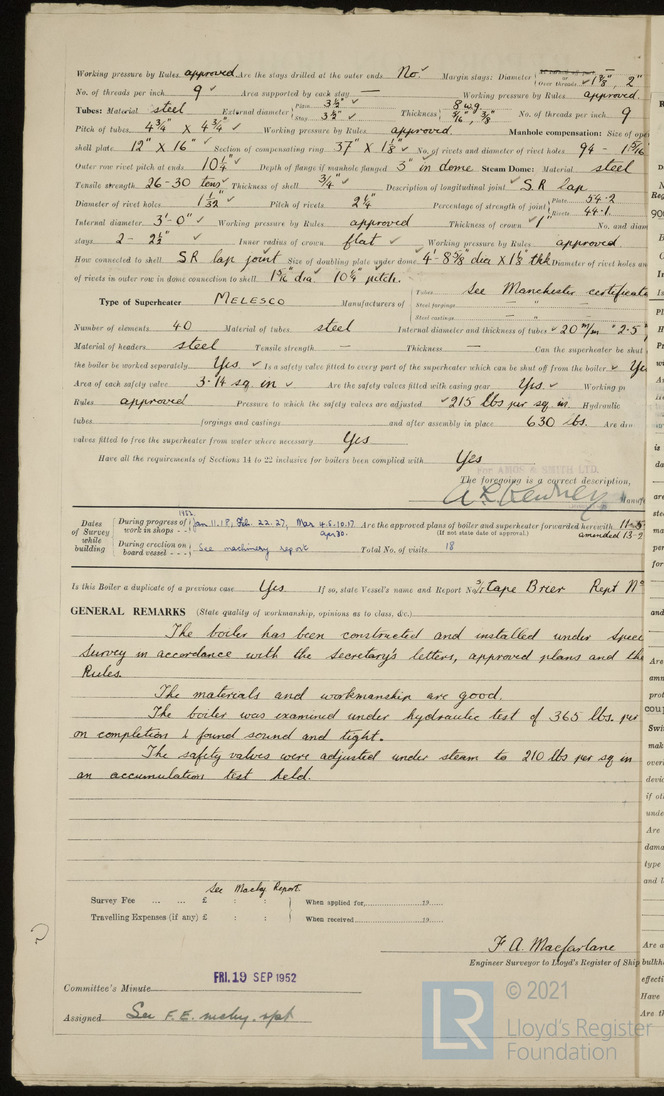 Working pressure by Rules approved Are the stays drilled at the outer ends No. Margin stays: Diameter Over threads 1 7/8", 2"
No. of threads per inch 9 Area supported by each stay — Working pressure by Rules approved.
Tubes: Material steel External diameter Plain 3½" Stay 3½" Thickness 8 w.g. 5/16", 3/8" No. of threads per inch 9
Pitch of tubes 4¾" x 4¾" Working pressure by Rules approved. Manhole compensation: Size of ope
shell plate 12" x 16" Section of compensating ring 37" x 1⅛" No. of rivets and diameter of rivet holes 94 - 1 5/16
Outer row rivet pitch at ends 10¼" Depth of flange if manhole flanged 3" in dome Steam Dome: Material steel
Tensile strength 26-30 tons Thickness of shell ¾" Description of longitudinal joint S.R lap
Diameter of rivet holes 1 1/32" Pitch of rivets 2¼" Percentage of strength of joint Plate 54.2 Rivets 44.1
Internal diameter 3'-0" Working pressure by Rules approved Thickness of crown 1" No. and diam
stays 2 - 2½" Inner radius of crown flat Working pressure by Rules approved
How connected to shell S R lap joint Size of doubling plate under dome 4'-8⅝" dia x 1⅛" thk Diameter of rivet holes an
of rivets in outer row in dome connection to shell 1 5/16" dia 10¼" pitch.
Type of Superheater MELESCO Manufacturers of Tubes See Manchester certificate
Steel forgings — " —
Steel castings — " —
Number of elements 40 Material of tubes steel Internal diameter and thickness of tubes 20 m/m "2.5"
Material of headers steel Tensile strength — Thickness — Can the superheater be shut
the boiler be worked separately Yes. Is a safety valve fitted to every part of the superheater which can be shut off from the boiler Ye
Area of each safety valve 3.14 sq. in Are the safety valves fitted with easing gear Yes. Working p
Rules approved Pressure to which the safety valves are adjusted 215 lbs per sq in. Hydraulic
tubes forgings and castings and after assembly in place 630 lbs. Are dra
valves fitted to free the superheater from water where necessary Yes
Have all the requirements of Sections 14 to 22 inclusive for boilers been complied with Yes
FOR AMOS & SMITH LTD.
The foregoing is a correct description,
Manufa
Dates of Survey while building During progress of work in shops 1952. Jan 11.18, Feb. 22.27, Mar 4.6.10.17 Apr 30. Are the approved plans of boiler and superheater forwarded herewith.
(If not state date of approval.) amended 13-2
During erection on board vessel See machinery report Total No. of visits 18
Is this Boiler a duplicate of a previous case Yes. If so, state Vessel's name and Report No. Cape Brier Rept No
GENERAL REMARKS (State quality of workmanship, opinions as to class, &c.)
The boiler has been constructed and installed under Spec
Survey in accordance with the Secretary's letters, approved plans and the
Rules.
The materials and workmanship are good.
The boiler was examined under hydraulic test of 365 lbs. per
on completion & found sound and tight.
The safety valves were adjusted under steam to 210 lbs per sq in
an accumulation test held.
See Machy Report.
Survey Fee ... ... £ : : When applied for, 19
Travelling Expenses (if any) £ : : When received 19
F A. Macfarlane
Engineer Surveyor to Lloyd's Register of Ship
FRI. 19 SEP 1952
Committee's Minute
Assigned See F.E. mchy. rpt
LR © 2021
Lloyd's Register
Foundation